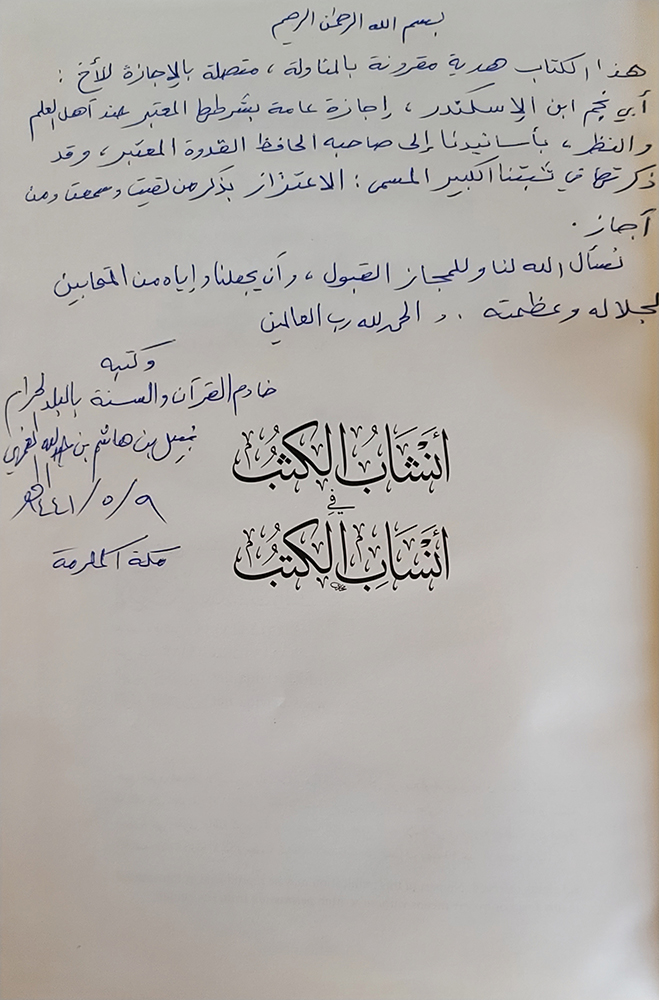 بسم الله الرحمٰن الرحيم
هذا الكتاب هدية مقرونة بالمناولة، متصلة بالإجازة للأخ :
أبي نجم ابن الإسكندر، إجازة عامة بشرطها المعتبر عند أهل العلم
والنظر، بأسانيدنا إلى صاحبه الحافظ القدوة المعتبر، وقد
ذكرتها في ثبتنا الكبير المسمى : الاعتزاز بذكر من لقيت وسمعت ومن
أجاز .
نسأل الله لنا وللمجاز القبول، وأن يجعلنا وإياه من المتحابين
لجلاله وعظمته . والحمد لله رب العالمين
وكتبه
خادم القرآن والسنة بالبلد الحرام
بن هاشم بن
٩/ ٥/ ١٤٤١هـ
مكة المكرمة
أَنْشَابُ الكُتُبِ
فِي
أَنْسَابِ الكُتُبِ